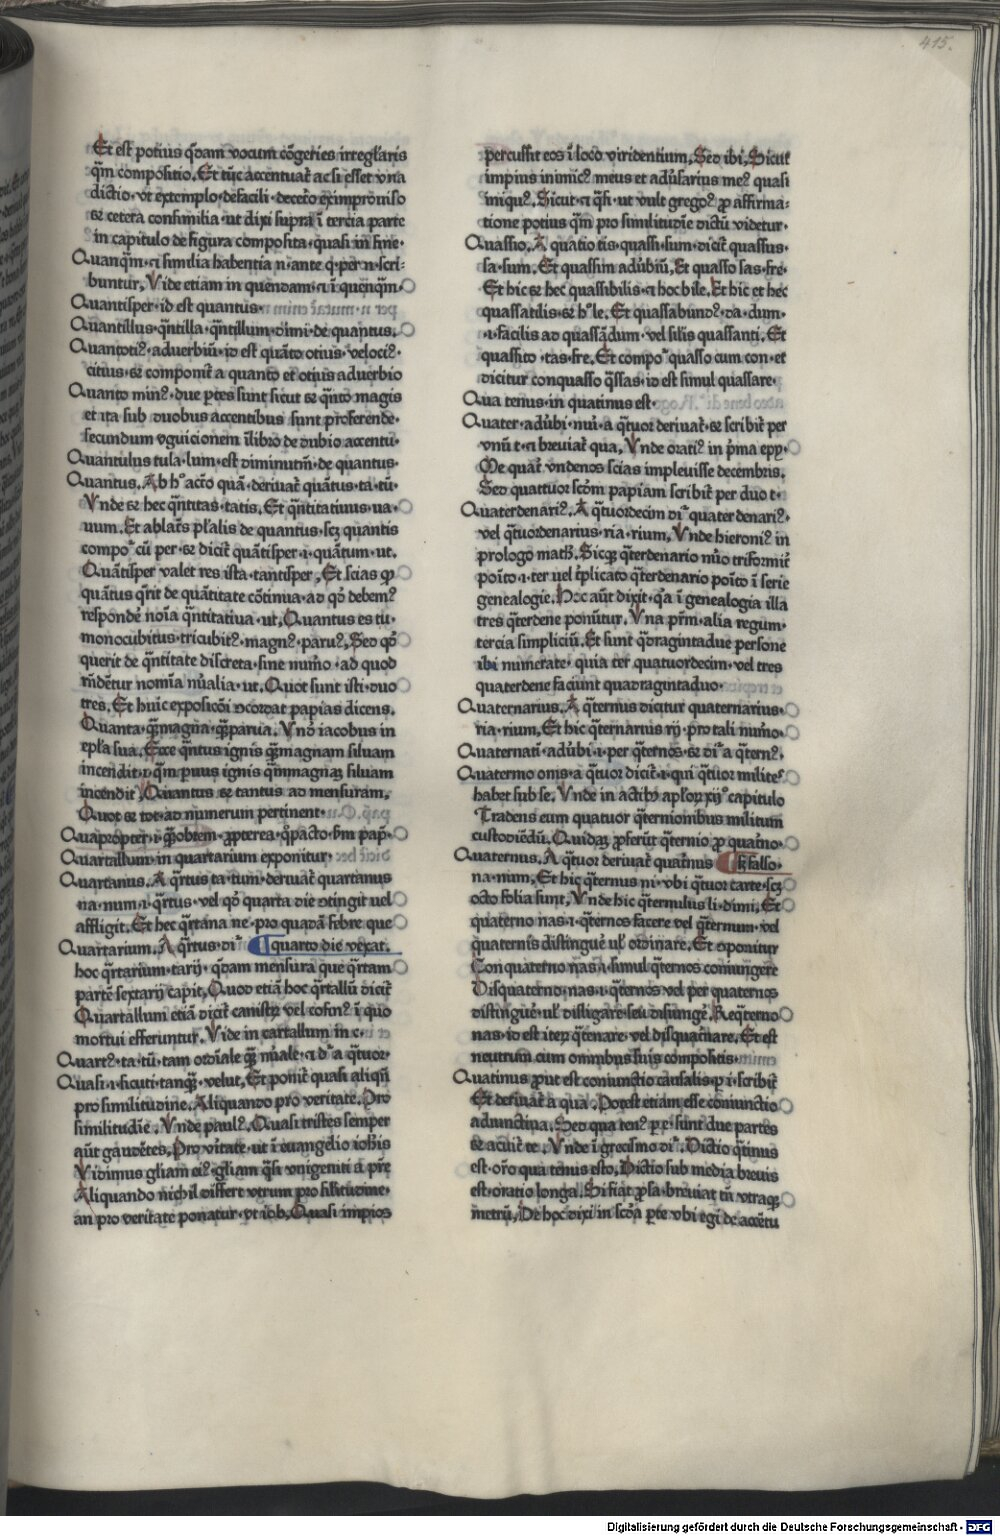 415.
Et est potius q̄dam vocum cōgeries irregl'aris
q̄m compositio. Et tūc accentuat̄ ac si esset vna
dictio. vt extemplo. defacili. decetō eximprouiso
⁊ cetera consimilia. ut dixi supra ī tercia parte
in capitulo de figura composita. quasi in fine.
Quanq̄m. ⁊ similia habentia n. ante q. per n. scri-
buntur, Vide etiam in quendam. ⁊ ī quenq̄m.
Quantisper. id est quantus.
Quantillus. q̄ntilla. q̄ntillum. dimi. de quantus.
Quantoti⁹. aduerbiū. id est quāto otius. veloci⁹.
citius. ⁊ componit̄ a quanto et otius aduerbio
Quanto min⁹. due ꝑtes sunt sicut ⁊ q̄nto magis
et ita sub duobus accentibus sunt proferende.
secundum vguicionem ī libro de dubio accentu.
Quantulus tula. lum. est diminutiū. de quantus.
Quantus. Ab h° actō quā. deriuat̄ quātus. ta. tū.
Vnde ⁊ hec q̄ntitas. tatis. Et q̄ntitatiuus. ua.
uum. Et ablat̄s pl'alis de quantus. scꝫ quantis
compo° cū per. ⁊ dicit̄ quātisper. i. quātum. ut.
Quātisper valet res ista. tantisper, Et scias ꝙ
quātus q̄rit de quātitate cōtinua. ad qd̄ debem⁹
respondē noīa q̄ntitatiua. ut, Quantus es tu.
monocubitus. tricubit⁹. magn⁹. paru⁹, Sed qd̄
querit de q̄ntitate discreta. siue num̄o. ad quod
rn̄dētur nomīa nūalia. ut. Quot sunt isti. duo
tres, Et huic exposicōi ↄcordat papias dicens.
Quanta. q̄ꝫ magna. q̄ꝫ parua. Vnd̄ iacobus in
epl'a sua. Ecce q̄ntus ignis q̄ꝫ magnam siluam
incendit. i. q̄m paruus ignis q̄m magnaꝫ siluam
incendit Quantus ⁊ tantus ad mensuram.
Quot ⁊ tot. ad numerum pertinent.
Quapropter. i. q̄ꝫ obtem. ꝓpterea. q̄ pacto. fm̄ pap̄.
Quartallum in quartarium exponitur.
Quartanus. A q̄rtus ta. tum. deriuat̄ quartanus
na. num. i. q̄rtus. vel qd̄ quarta die ↄtingit uel
affligit. Et hec q̄rtana ne. pro quadā febre que
Quartarium. A q̄rtus. di° quarto die vexat.
hoc q̄rtarium. tarij. q̄dam mensura que q̄rtam
partē sextarij capit. Quod etiā hoc q̄rtallū dicit̄
Quartallum etiā dicit̄ canistrū vel cofin⁹ ī quo
mortui efferuntur. Vide in cartallum in c.
Quart⁹. ta. tū. tam ordiale q̄ꝫ nūale. ⁊ d° a q̄tuor.
Quasi. i. sicuti. tanq̄ꝫ. velut, Et ponit̄ quasi aliqn̄
pro similitudine. Aliquando pro veritate. Pro
similitudīe. Vnde paul⁹. Quasi tristes semper
aūt gaudētes. Pro vītate. ut ī euangelio ioh̄is
Vidimus gliam ei⁹. gliam q̄si vnigeniti a pr̄e
Aliquando nichil differt vtrum pro silitudine.
an pro veritate ponatur. vt iob. Quasi impios
percussit eos ī loco viridentium. Sed ibi, Sicut
impius inimic⁹ meus et adūsarius me⁹ quasi
iniqu⁹. Sicut. ⁊ q̄si. ut vult grego⁹ ꝓ affirma-
tione potius q̄m pro similitudīe dictū videtur.
Quassio. A quatio tis. quassi. sum. dicit̄ quassus.
sa. sum. Et quassim adūbiū. Et quasso sas. sre.
Et hic ⁊ hec quassibilis. ⁊ hoc bile. Et hic et hec
quassatilis. ⁊ h° le. Et quassabund⁹. da. dum.
.i. facilis ad quassādum. vel silis quassanti. Et
quassito. tas. sre. Et compo° quasso cum con. et
dicitur conquasso q̄ssas. id est simul quassare.
Qua tenus. in quatinus est.
Quater. adūbi. nūi. a q̄tuor deriuat̄. ⁊ scribit̄ per
vnū t. ⁊ breuiat̄ qua, Vnde orati⁹ in p̄ma epp̄.
Me quat̄ vndenos scias impleuisse decembris.
Sed quattuor scōm papiam scribit̄ per duo t.
Quaterdenari⁹. A q̄tuordecim di° quater denari⁹.
vel q̄tuordenarius. ria. rium, Vnde hieroni⁹ in
prologo math̄. Sicqꝫ q̄terdenario nūo triformit̄
poīto. i. ter uel t̄plicato q̄terdenario poīto ī serie
genealogie. Hoc aūt dixit. q̄a ī genealogia illa
tres q̄terdene ponūtur. Vna pr̄m. alia regum.
tercia simpliciū. Et sunt q̄draginta due persone
ibi numerate. quia ter quatuordecim. vel tres
quaterdene faciunt quadragintaduo.
Quaternarius. A q̄ternus dicitur quaternarius.
ria. rium, Et hic q̄ternarius rij. pro tali num̄o.
Quaternati. adūbi. i. per q̄ternos. ⁊ di° a q̄tern⁹.
Quaternio onis. a q̄tuor dicit̄. i. qui q̄tuor milites
habet sub se. Vnde in actibꝫ apl'oꝝ xij° capitulo
Tradens eum quatuor q̄ternionibus militum
custodiēdū. Quidaꝫ ꝓferūt q̄ternio ꝓ quat̄no.
Quaternus. A q̄tuor deriuat̄ quat̄nus sꝫ falso.
na. num, Et hic q̄ternus ni. vbi q̄tuor carte. scꝫ
octo folia sunt, Vnde hic q̄ternulus li. dimi, Et
quaterno nas. i. q̄ternos facere vel q̄ternum. vel
quaternis distingue ul' ordinare. Et ↄponitur
Con quaterno nas. i. simul q̄ternos coniungere
Disquaterno. nas. i. q̄ternos vel per quaternos
distinguē. ul' disligare. seu disiungē. Req̄terno
nas. id est iteꝝ q̄tenare. vel disquat̄nare. Et est
neutrum cum omnibus suis compositis.
Quatinus ꝓut est coniunctio causalis. ꝑ i. scribit̄
Et deriuat̄ a qua. Potest etiam esse coniunctio
adiunctiua. Sed qua ten⁹. ꝑ e. sunt due partes
⁊ acuit̄ te. Vnde ī grecismo di°. Dictio q̄tinus
est. or̄o qua tenus esto, Dictio sub media breuis
est. oratio longa. Si fiat ꝓsa. breuiat tū vtraqꝫ
metrū, De hoc dixi in scōa ꝑte vbi egi de accētu
Digitalisierung gefördert durch die Deutsche Forschungsgemeinschaft - DFG